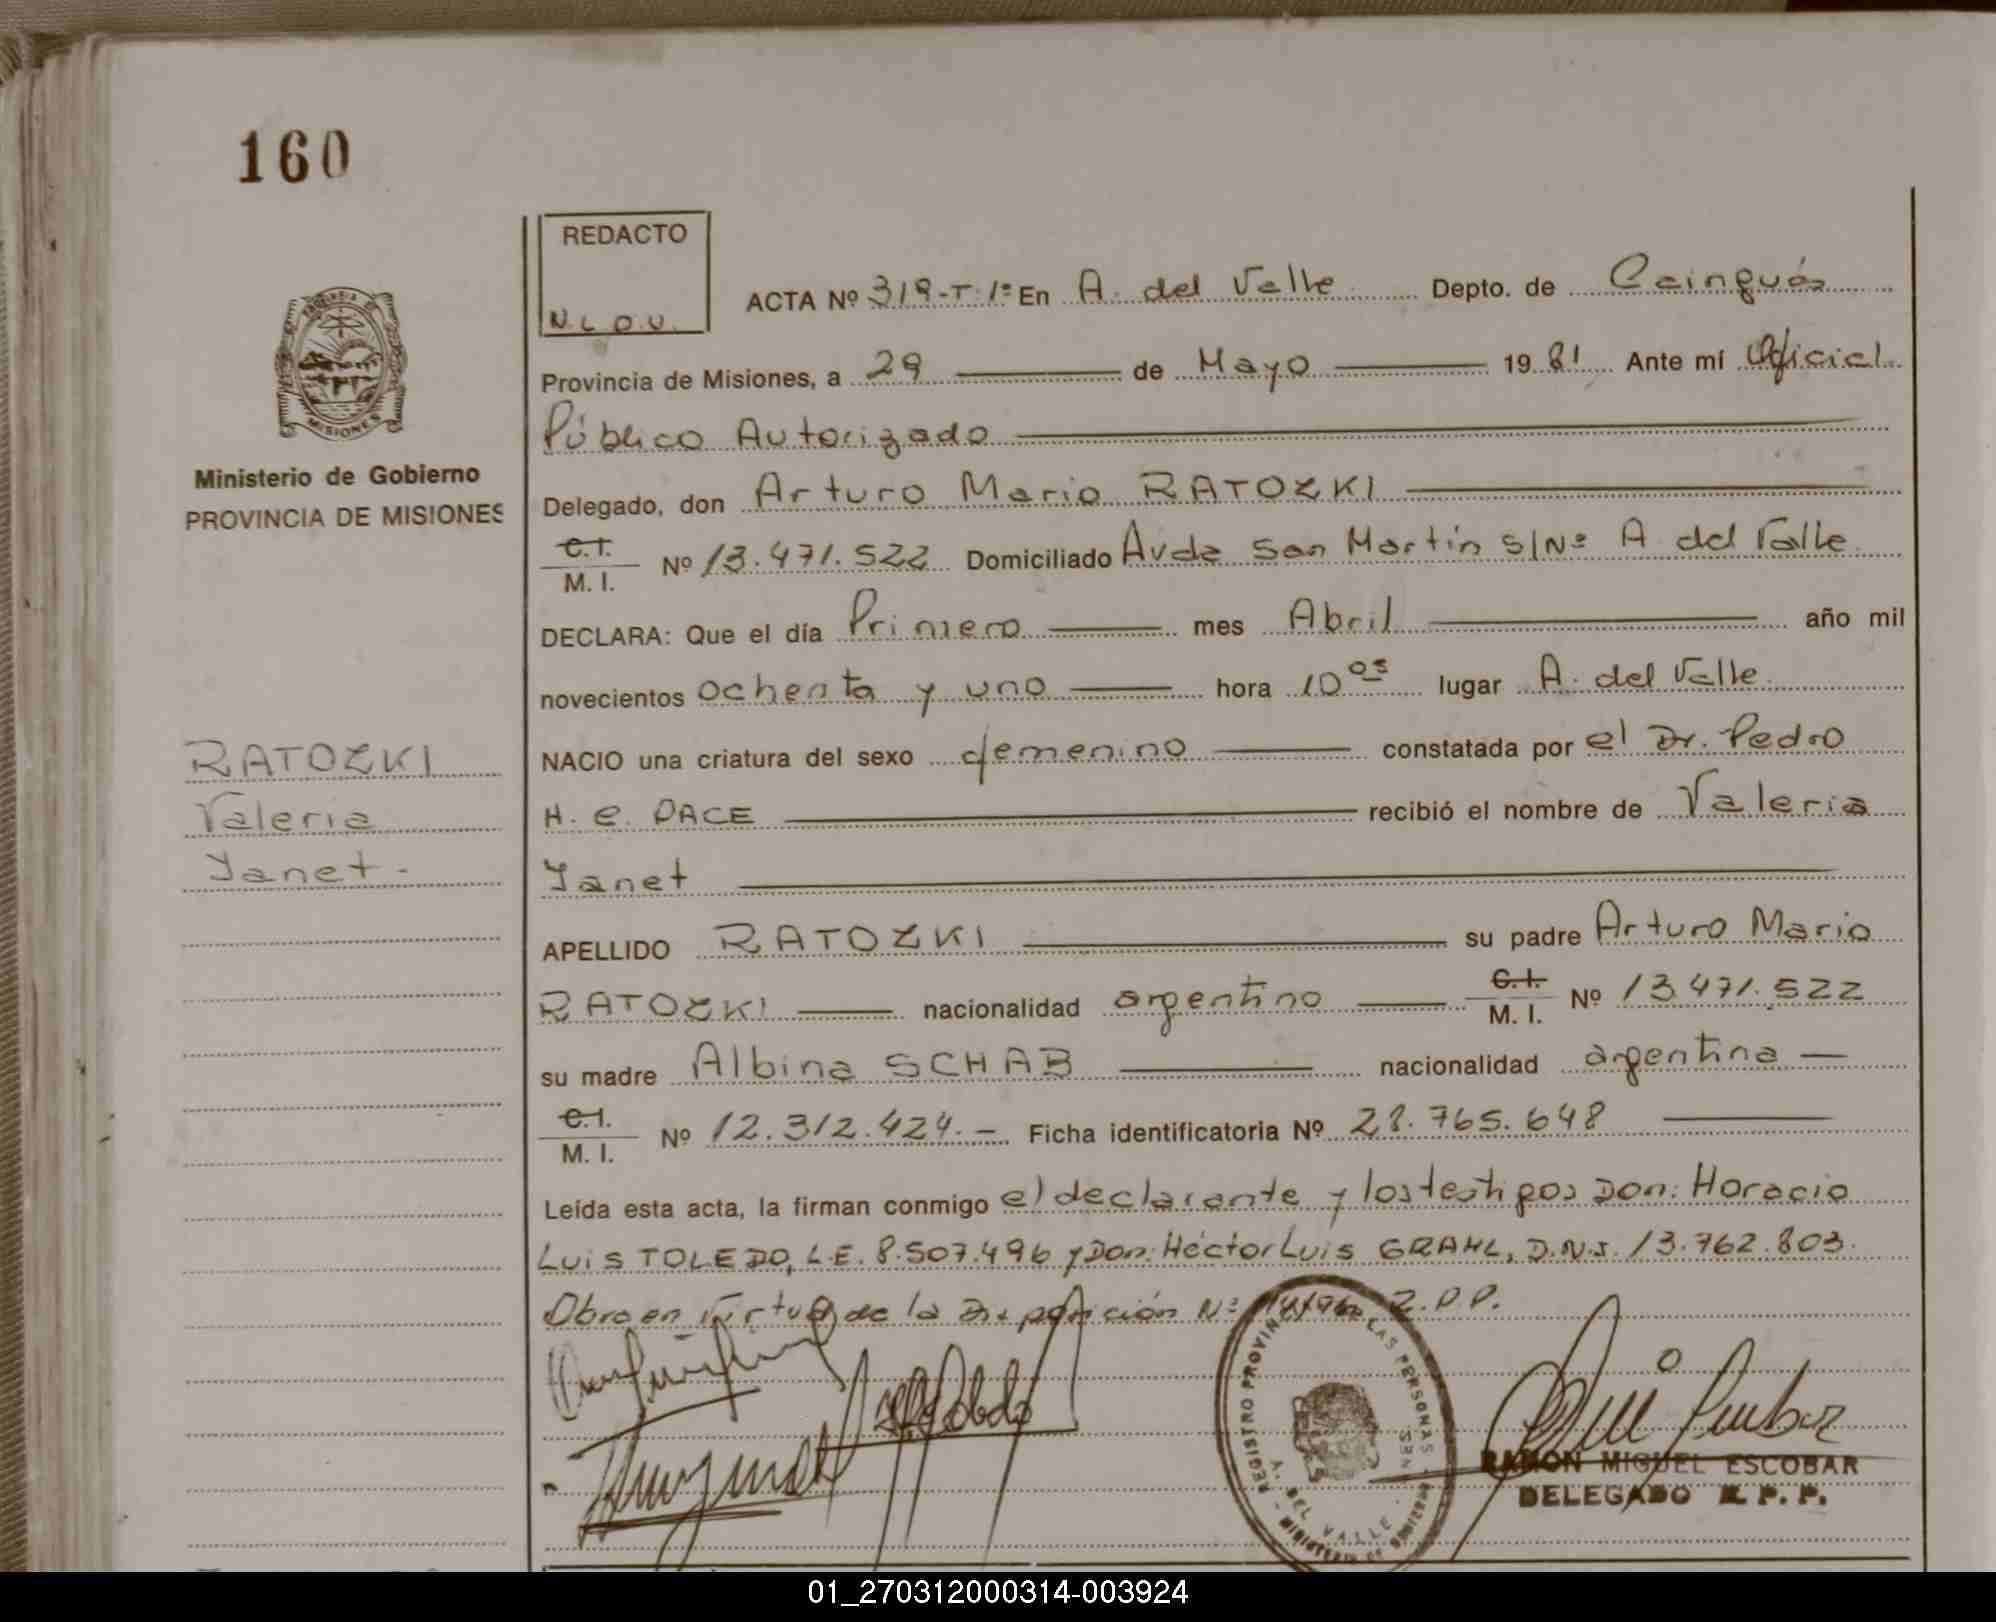 160
REDACTO
N.L.O.V.
ACTA Nº 319-T:1º En A. del Valle Depto. de Cainguás
Provincia de Misiones, a 29 de Mayo 1981 Ante mí Oficial
Público Autorizado
Delegado, don Arturo Mario RATOZKI
C.I. M. I. Nº 13.471.522 Domiciliado Avda San Martín S/Nº A del Valle
DECLARA: Que el día Primero mes Abril año mil
novecientos ochenta y uno hora 10 05 lugar A. del Valle
NACIO una criatura del sexo femenino constatada por el Dr. Pedro
H. C. PACE recibió el nombre de Valeria
Yanet
APELLIDO RATOZKI su padre Arturo Mario
RATOZKI nacionalidad argentino C.I. M. I. Nº 13.471.522
su madre Albina SCHAB nacionalidad argentina
C.I. M. I. Nº 12.312.424.- Ficha identificatoria Nº 28.765.648
Leída esta acta, la firman conmigo el declarante y los testigos Don: Horacio
Luis TOLEDO, L.E. 8.507.496 y Don: Héctor Luis GRAHL, D.N.I. 13.762.803.
Obro en virtud de la Disposición Nº
RAMON MIGUEL ESCOBAR
DELEGADO R. P. P.
REGISTRO PROVINCIAL DE LAS PERSONAS
DEL VALLE
MISIONES
Ministerio de Gobierno
PROVINCIA DE MISIONES
RATOZKI
Valeria
Yanet.-
01_270312000314-003924